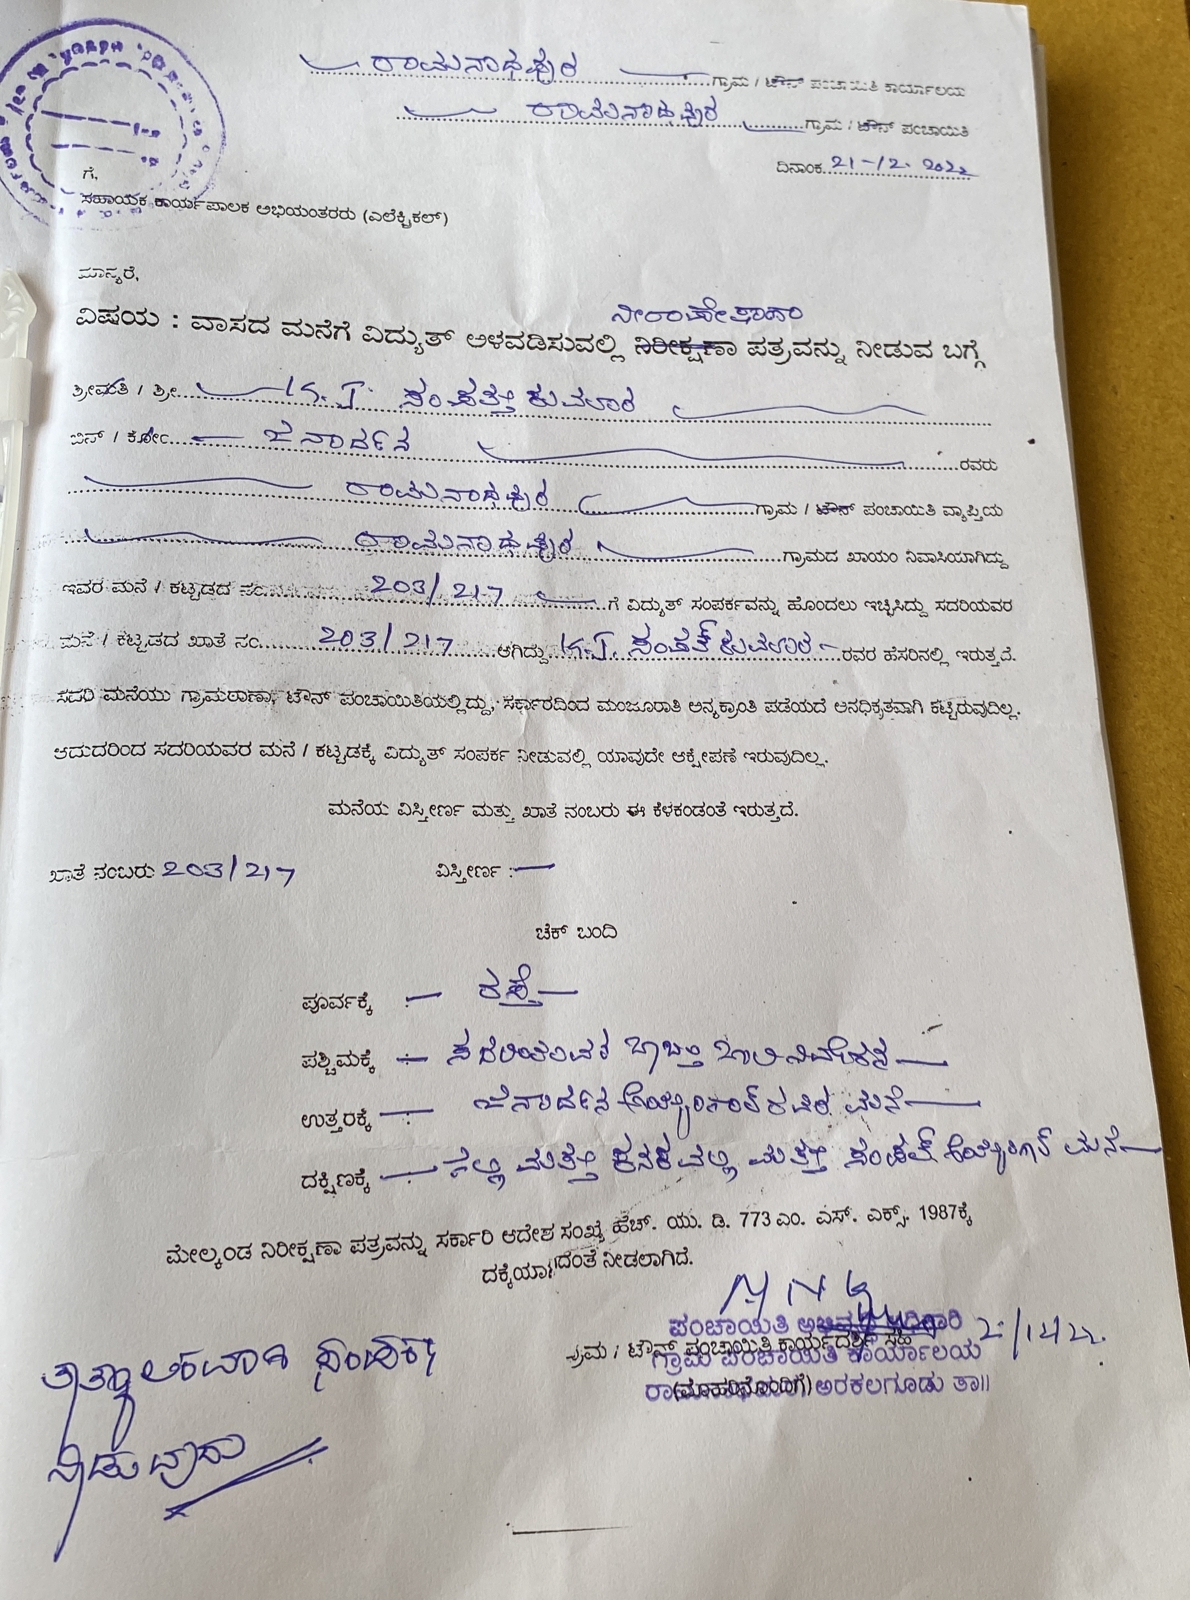 ರಾಮನಾಥಪುರ ಗ್ರಾಮ / ಟೌನ್ ಪಂಚಾಯಿತಿ ಕಾರ್ಯಾಲಯ
ರಾಮನಾಥಪುರ ಗ್ರಾಮ / ಟೌನ್ ಪಂಚಾಯಿತಿ
ದಿನಾಂಕ 21-12-2022
ಗೆ,
ಸಹಾಯಕ ಕಾರ್ಯಪಾಲಕ ಅಭಿಯಂತರರು (ಎಲೆಕ್ಟ್ರಿಕಲ್)
ಮಾನ್ಯರೆ,
ನಿರಾಪೇಕ್ಷಣಾ
ವಿಷಯ : ವಾಸದ ಮನೆಗೆ ವಿದ್ಯುತ್ ಅಳವಡಿಸುವಲ್ಲಿ ನಿರೀಕ್ಷಣಾ ಪತ್ರವನ್ನು ನೀಡುವ ಬಗ್ಗೆ
ಶ್ರೀಮತಿ / ಶ್ರೀ K.J. ಸಂಪತ್ ಕುಮಾರ
ಬಿನ್ / ಕೋಂ ಜನಾರ್ದನ ರವರು
ರಾಮನಾಥಪುರ ಗ್ರಾಮ / ಟೌನ್ ಪಂಚಾಯಿತಿ ವ್ಯಾಪ್ತಿಯ
ರಾಮನಾಥಪುರ ಗ್ರಾಮದ ಖಾಯಂ ನಿವಾಸಿಯಾಗಿದ್ದು
ಇವರ ಮನೆ / ಕಟ್ಟಡದ ಸಂ 203/217 ಗೆ ವಿದ್ಯುತ್ ಸಂಪರ್ಕವನ್ನು ಹೊಂದಲು ಇಚ್ಛಿಸಿದ್ದು ಸದರಿಯವರ
ಮನೆ / ಕಟ್ಟಡದ ಖಾತೆ ನಂ. 203/217 ಆಗಿದ್ದು K.J. ಸಂಪತ್ ಕುಮಾರ ರವರ ಹೆಸರಿನಲ್ಲಿ ಇರುತ್ತದೆ.
ಸದರಿ ಮನೆಯು ಗ್ರಾಮಠಾಣಾ, ಟೌನ್ ಪಂಚಾಯಿತಿಯಲ್ಲಿದ್ದು, ಸರ್ಕಾರದಿಂದ ಮಂಜೂರಾತಿ ಅನ್ಯಕ್ರಾಂತಿ ಪಡೆಯದೆ ಅನಧಿಕೃತವಾಗಿ ಕಟ್ಟಿರುವುದಿಲ್ಲ.
ಆದುದರಿಂದ ಸದರಿಯವರ ಮನೆ / ಕಟ್ಟಡಕ್ಕೆ ವಿದ್ಯುತ್ ಸಂಪರ್ಕ ನೀಡುವಲ್ಲಿ ಯಾವುದೇ ಆಕ್ಷೇಪಣೆ ಇರುವುದಿಲ್ಲ.
ಮನೆಯ ವಿಸ್ತೀರ್ಣ ಮತ್ತು ಖಾತೆ ನಂಬರು ಈ ಕೆಳಕಂಡಂತೆ ಇರುತ್ತದೆ.
ಖಾತೆ ನಂಬರು 203/217 ವಿಸ್ತೀರ್ಣ :
ಚೆಕ್ ಬಂದಿ
ಪೂರ್ವಕ್ಕೆ :- ರಸ್ತೆ
ಪಶ್ಚಿಮಕ್ಕೆ :- ಸದರಿಯವರ ಬಾಬ್ತು ಖಾಲಿ ನಿವೇಶನ
ಉತ್ತರಕ್ಕೆ :- ಜನಾರ್ದನ ಅಯ್ಯಂಗಾರ್ ರವರ ಮನೆ
ದಕ್ಷಿಣಕ್ಕೆ :- ಮತ್ತು ಮತ್ತು ಸಂಪತ್ ಅಯ್ಯಂಗಾರ್ ಮನೆ
ಮೇಲ್ಕಂಡ ನಿರೀಕ್ಷಣಾ ಪತ್ರವನ್ನು ಸರ್ಕಾರಿ ಆದೇಶ ಸಂಖ್ಯೆ ಹೆಚ್. ಯು. ಡಿ. 773 ಎಂ. ಎಸ್. ಎಕ್ಸ್. 1987ಕ್ಕೆ
ದಕ್ಕೆಯಾಗದಂತೆ ನೀಡಲಾಗಿದೆ.
ಪಂಚಾಯಿತಿ ಅಭಿವೃದ್ಧಿ ಅಧಿಕಾರಿ
ಗ್ರಾಮ / ಟೌನ್ ಪಂಚಾಯಿತಿ ಕಾರ್ಯದರ್ಶಿ ಸಹಿ
ಗ್ರಾಮ ಪಂಚಾಯಿತಿ ಕಾರ್ಯಾಲಯ
(ಮೊಹರಿನೊಂದಿಗೆ) ಅರಕಲಗೂಡು ತಾ||
ತಾತ್ಕಾಲಿಕವಾಗಿ ಸಂಪರ್ಕ
ನೀಡುವುದು